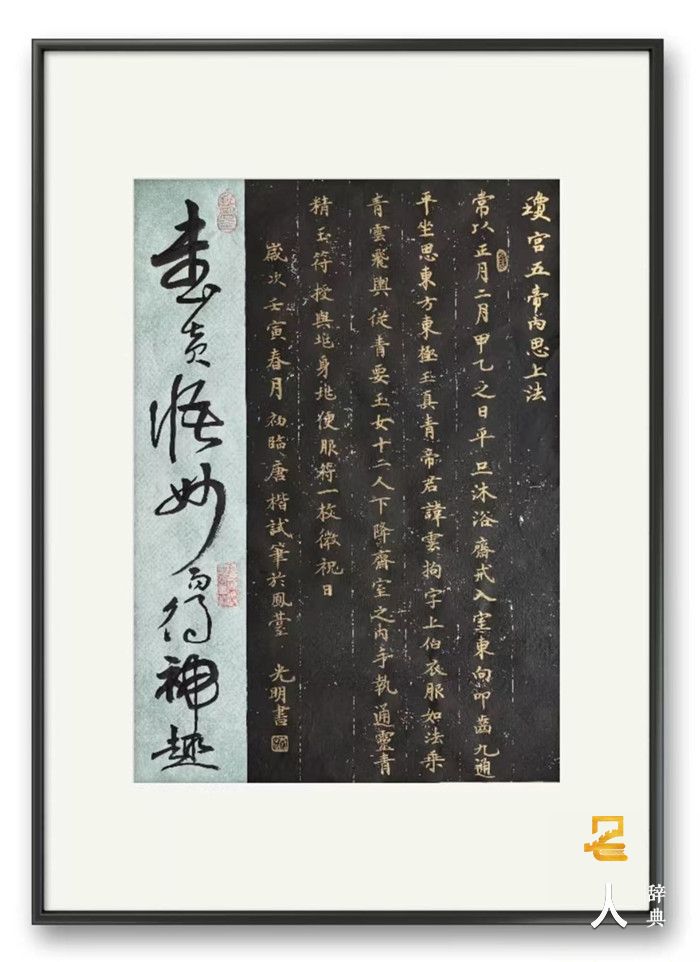 瓊宮五帝內思上法
常以正月二月甲乙之日平旦沐浴齋戒入室東向叩齒九通
平坐思東方東極玉真青帝君諱雲拘字上伯衣服如法乘
青雲飛輿從青要玉女十二人下降齋室之內手執通靈青
精玉符授與兆身兆便服符一枚微祝曰
歲次壬寅春月初臨唐楷試筆於鳳臺 光明書
書貴悟妙而得神趣
名人辞典